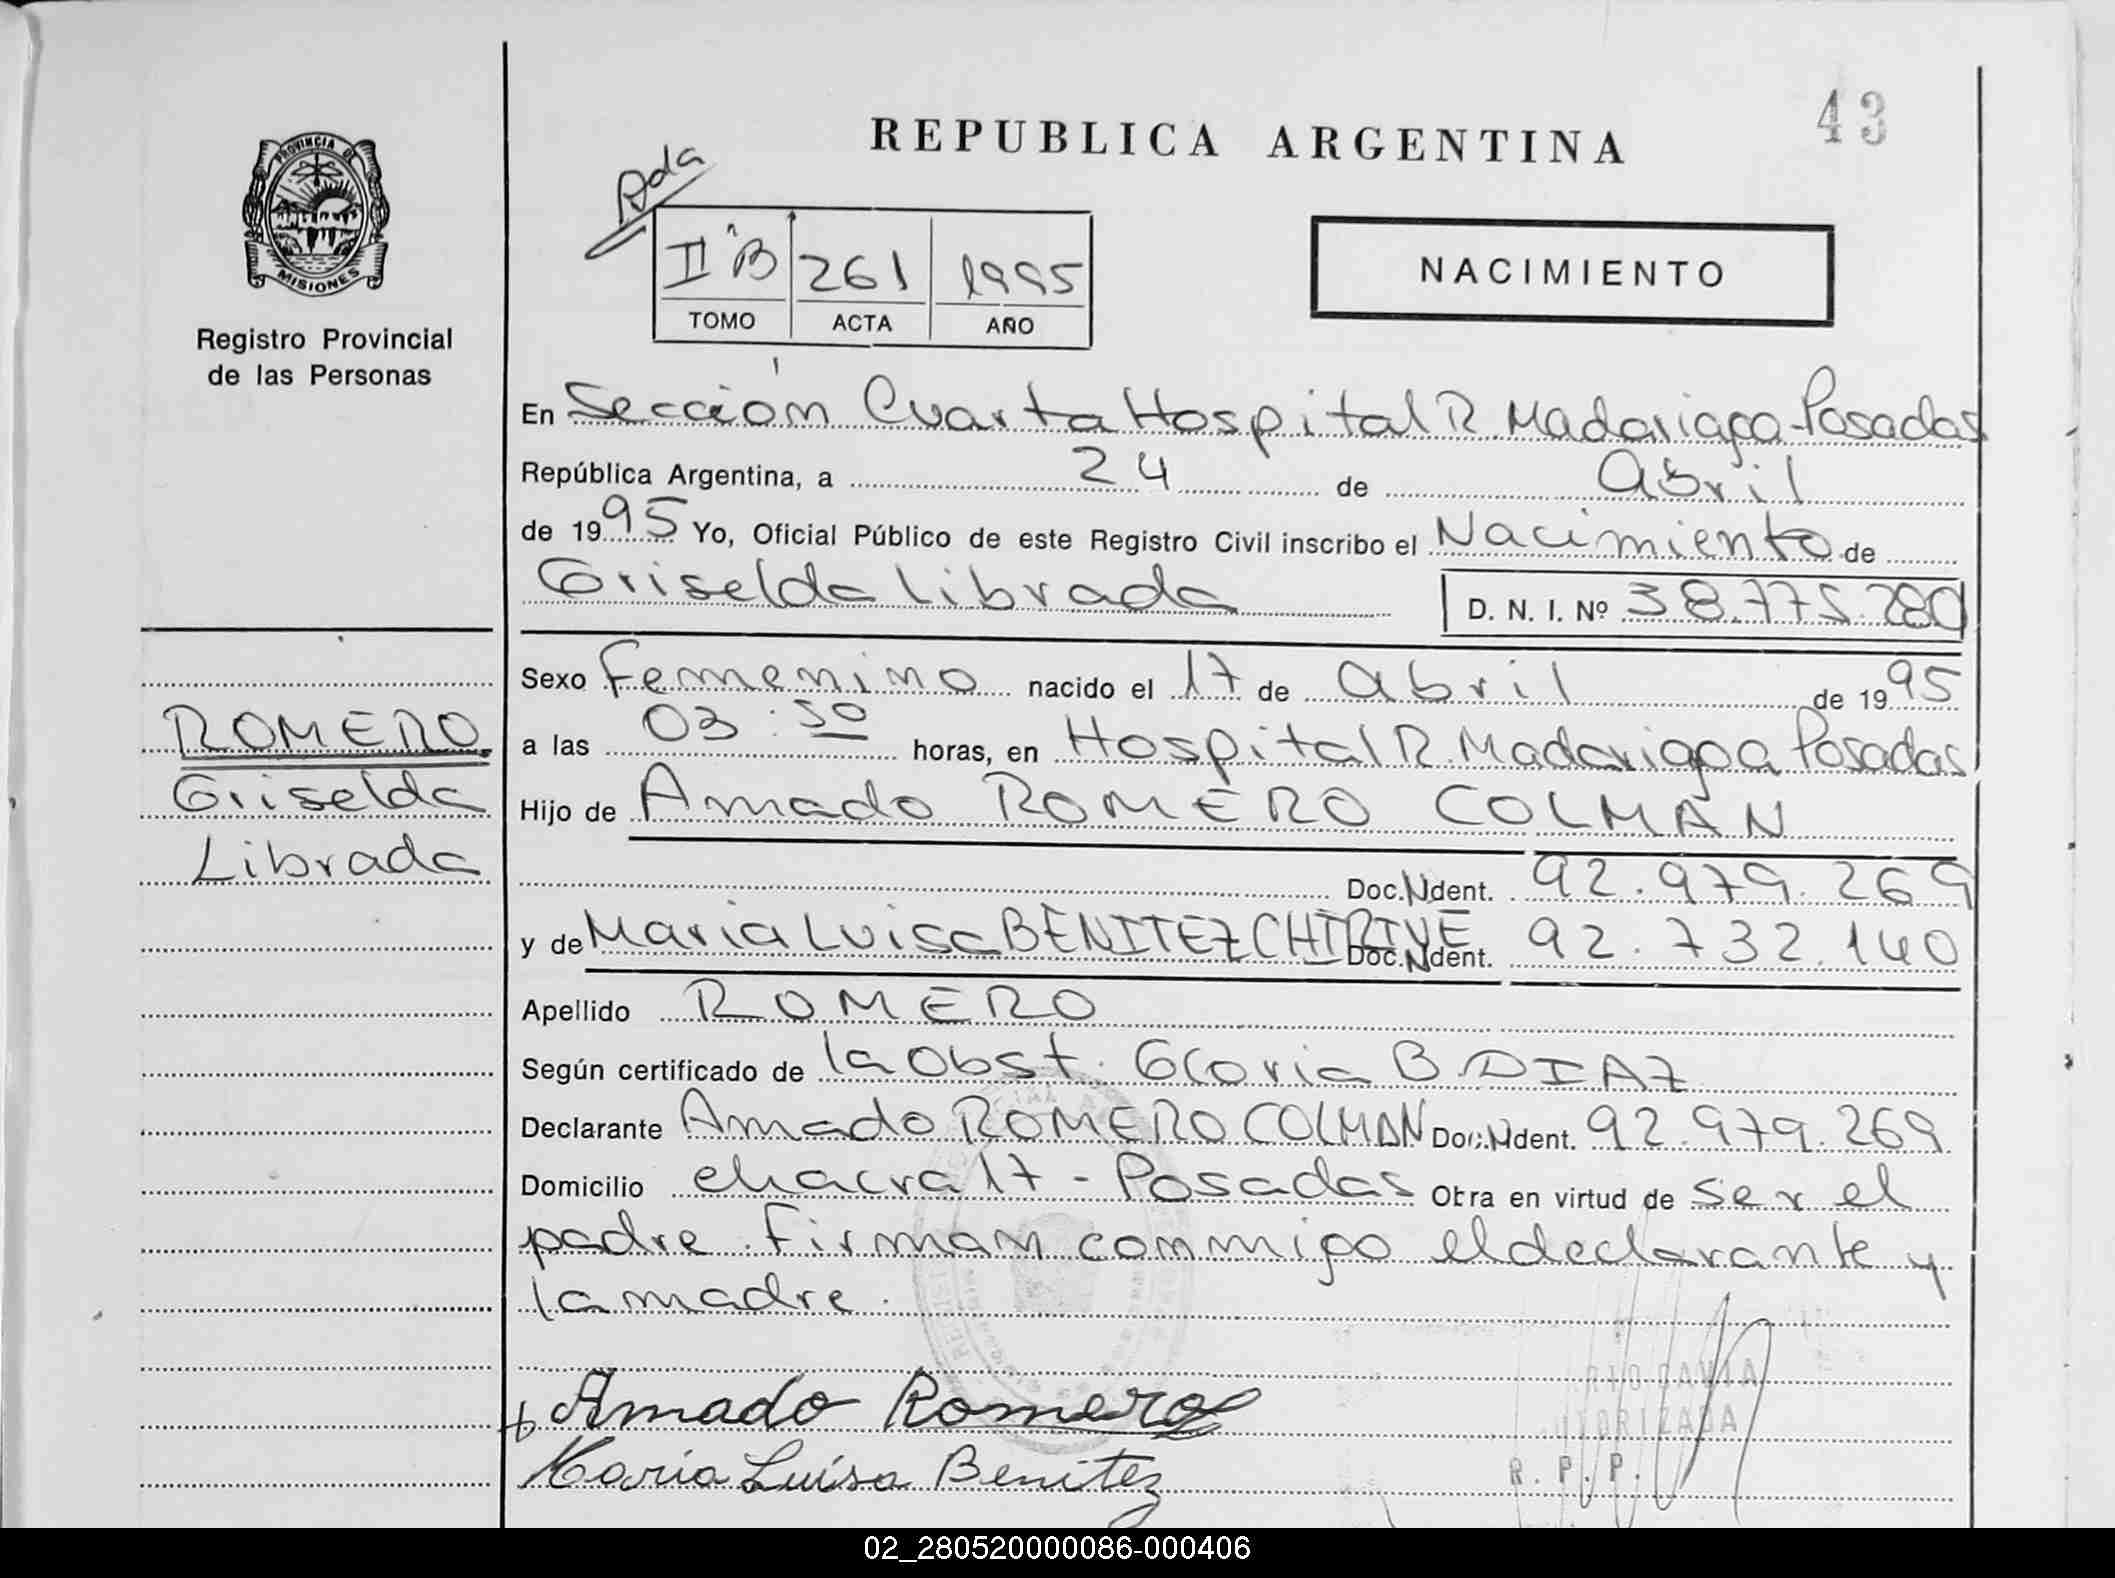 43
REPUBLICA ARGENTINA
PROVINCIA DE
MISIONES
Registro Provincial
de las Personas
Ada
II "B 261 1995
TOMO ACTA AÑO
NACIMIENTO
En Sección Cuarta Hospital R. Madariaga - Posadas
República Argentina, a 24 de abril
de 1995 Yo, Oficial Público de este Registro Civil inscribo el Nacimiento de
Griselda Librada D. N. I. Nº 38.775.280
Sexo Femenino nacido el 17 de abril de 1995
a las 03:50 horas, en Hospital R. Madariaga Posadas
Hijo de Amado ROMERO COLMAN
Doc. Ident. 92.979.269
y de Maria Luisa BENITEZ CHIRIVE Doc. Ident. 92.732.140
Apellido ROMERO
Según certificado de la Obst. Gloria B. DIAZ
Declarante Amado ROMERO COLMAN Doc. Ident. 92.979.269
Domicilio chacra 17 - Posadas Obra en virtud de ser el
padre. Firman conmigo el declarante y
la madre.
ROMERO
Griselda
Librada
Amado Romero
Maria Luisa Benitez
R. P. P.
02_280520000086-000406